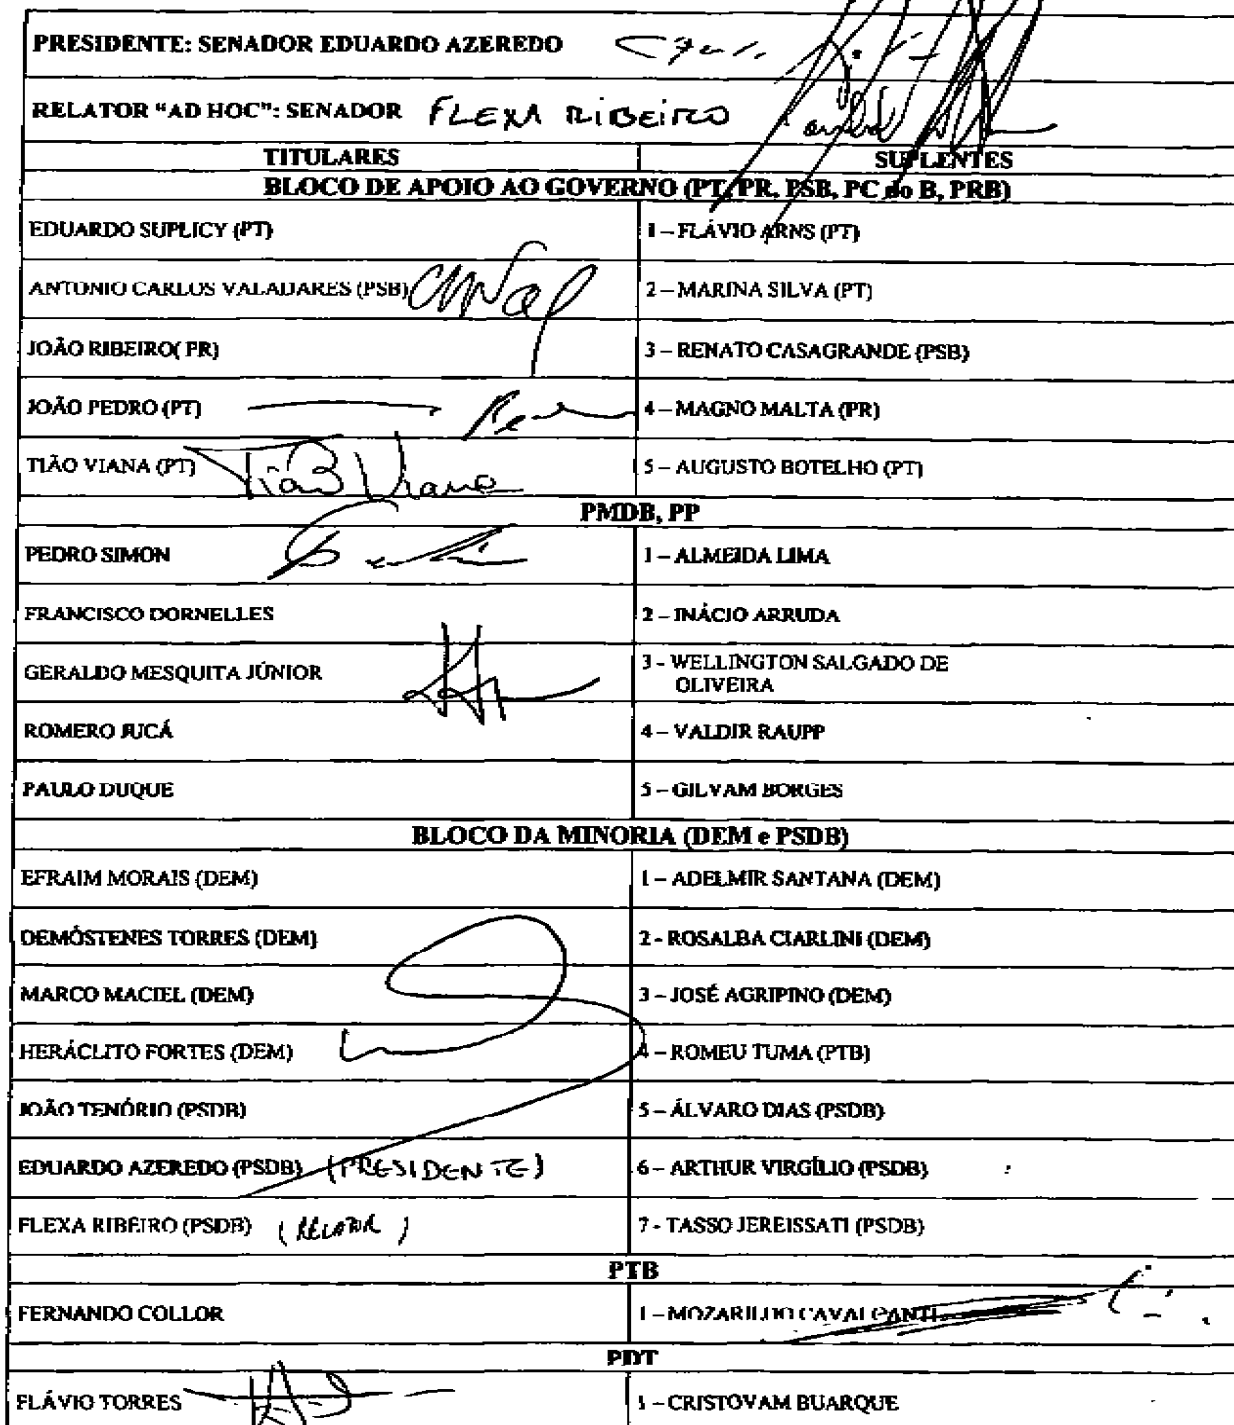 PRESIDENTE: SENADOR EDUARDO AZEREDO
RELATOR "AD HOC": SENADOR FLEXA RIBEIRO
TITULARES SUPLENTES
BLOCO DE APOIO AO GOVERNO (PT, PR, PSB, PC do B, PRB)
EDUARDO SUPLICY (PT) 1 – FLÁVIO ARNS (PT)
ANTONIO CARLOS VALADARES (PSB) 2 – MARINA SILVA (PT)
JOÃO RIBEIRO( PR) 3 – RENATO CASAGRANDE (PSB)
JOÃO PEDRO (PT) 4 – MAGNO MALTA (PR)
TIÃO VIANA (PT) Tião Viana 5 – AUGUSTO BOTELHO (PT)
PMDB, PP
PEDRO SIMON 1 – ALMEIDA LIMA
FRANCISCO DORNELLES 2 – INÁCIO ARRUDA
GERALDO MESQUITA JÚNIOR 3 - WELLINGTON SALGADO DE
OLIVEIRA
ROMERO JUCÁ 4 – VALDIR RAUPP
PAULO DUQUE 5 – GILVAM BORGES
BLOCO DA MINORIA (DEM e PSDB)
EFRAIM MORAIS (DEM) 1 – ADELMIR SANTANA (DEM)
DEMÓSTENES TORRES (DEM) 2 - ROSALBA CIARLINI (DEM)
MARCO MACIEL (DEM) 3 – JOSÉ AGRIPINO (DEM)
HERÁCLITO FORTES (DEM) 4 – ROMEU TUMA (PTB)
JOÃO TENÓRIO (PSDB) 5 – ÁLVARO DIAS (PSDB)
EDUARDO AZEREDO (PSDB) (PRESIDENTE) 6 – ARTHUR VIRGÍLIO (PSDB)
FLEXA RIBEIRO (PSDB) (RELATOR) 7 - TASSO JEREISSATI (PSDB)
PTB
FERNANDO COLLOR 1 – MOZARILDO CAVALCANTI
PDT
FLÁVIO TORRES 1 – CRISTOVAM BUARQUE